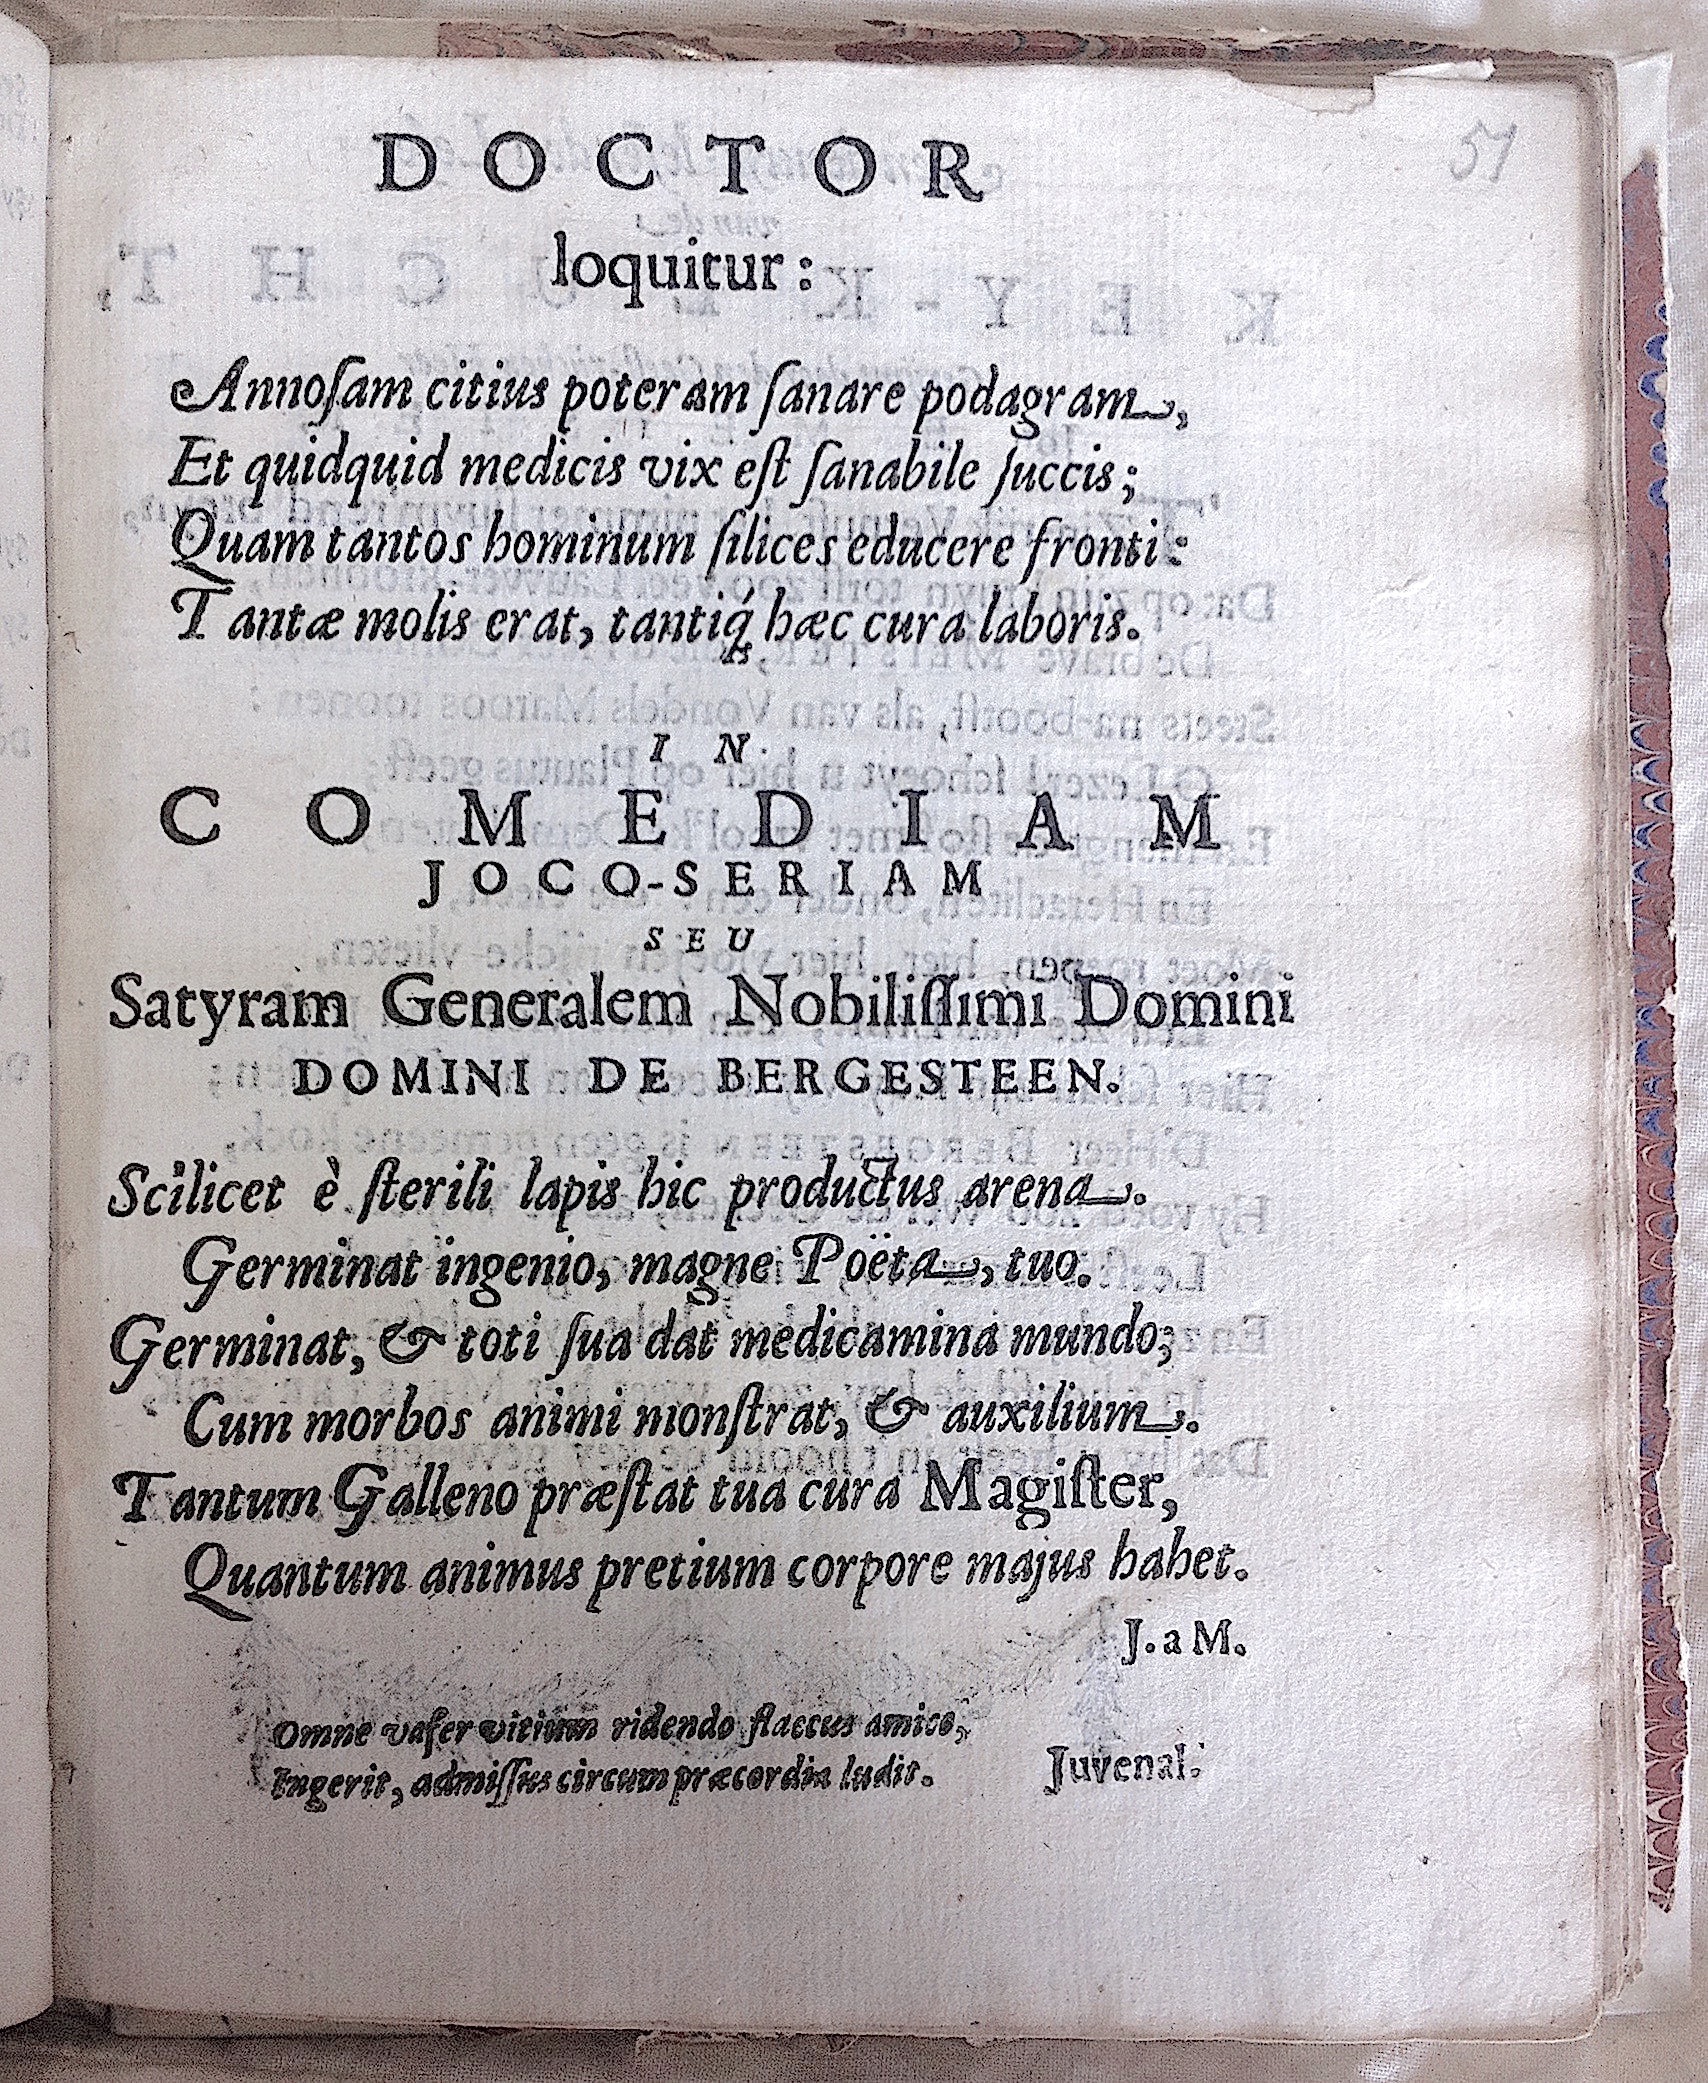 51
DOCTOR
loquitur:
Annoſam citius poteram ſanare podagram,
Et quidquid medicis vix eſt ſanabile ſuccis;
Quam tantos hominum ſilices educere fronti:
Tantæ molis erat, tantiq́; hæc cura laboris.
IN
COMEDIAM
JOCO-SERIAM
SEU
Satyram Generalem Nobiliſſimi Domini
DOMINI DE BERGESTEEN.
Scilicet è ſterili lapis hic productus arena.
Germinat ingenio, magne Poëta, tuo.
Germinat, & toti ſua dat medicamina mundo;
Cum morbos animi monſtrat, & auxilium.
Tantum Galleno præſtat tua cura Magiſter,
Quantum animus pretium corpore majus habet.
J. a M.
Omne vafer vitium ridendo flaccus amico,
Ingerit, admiſſus circum præcordia ludit.
Juvenal.